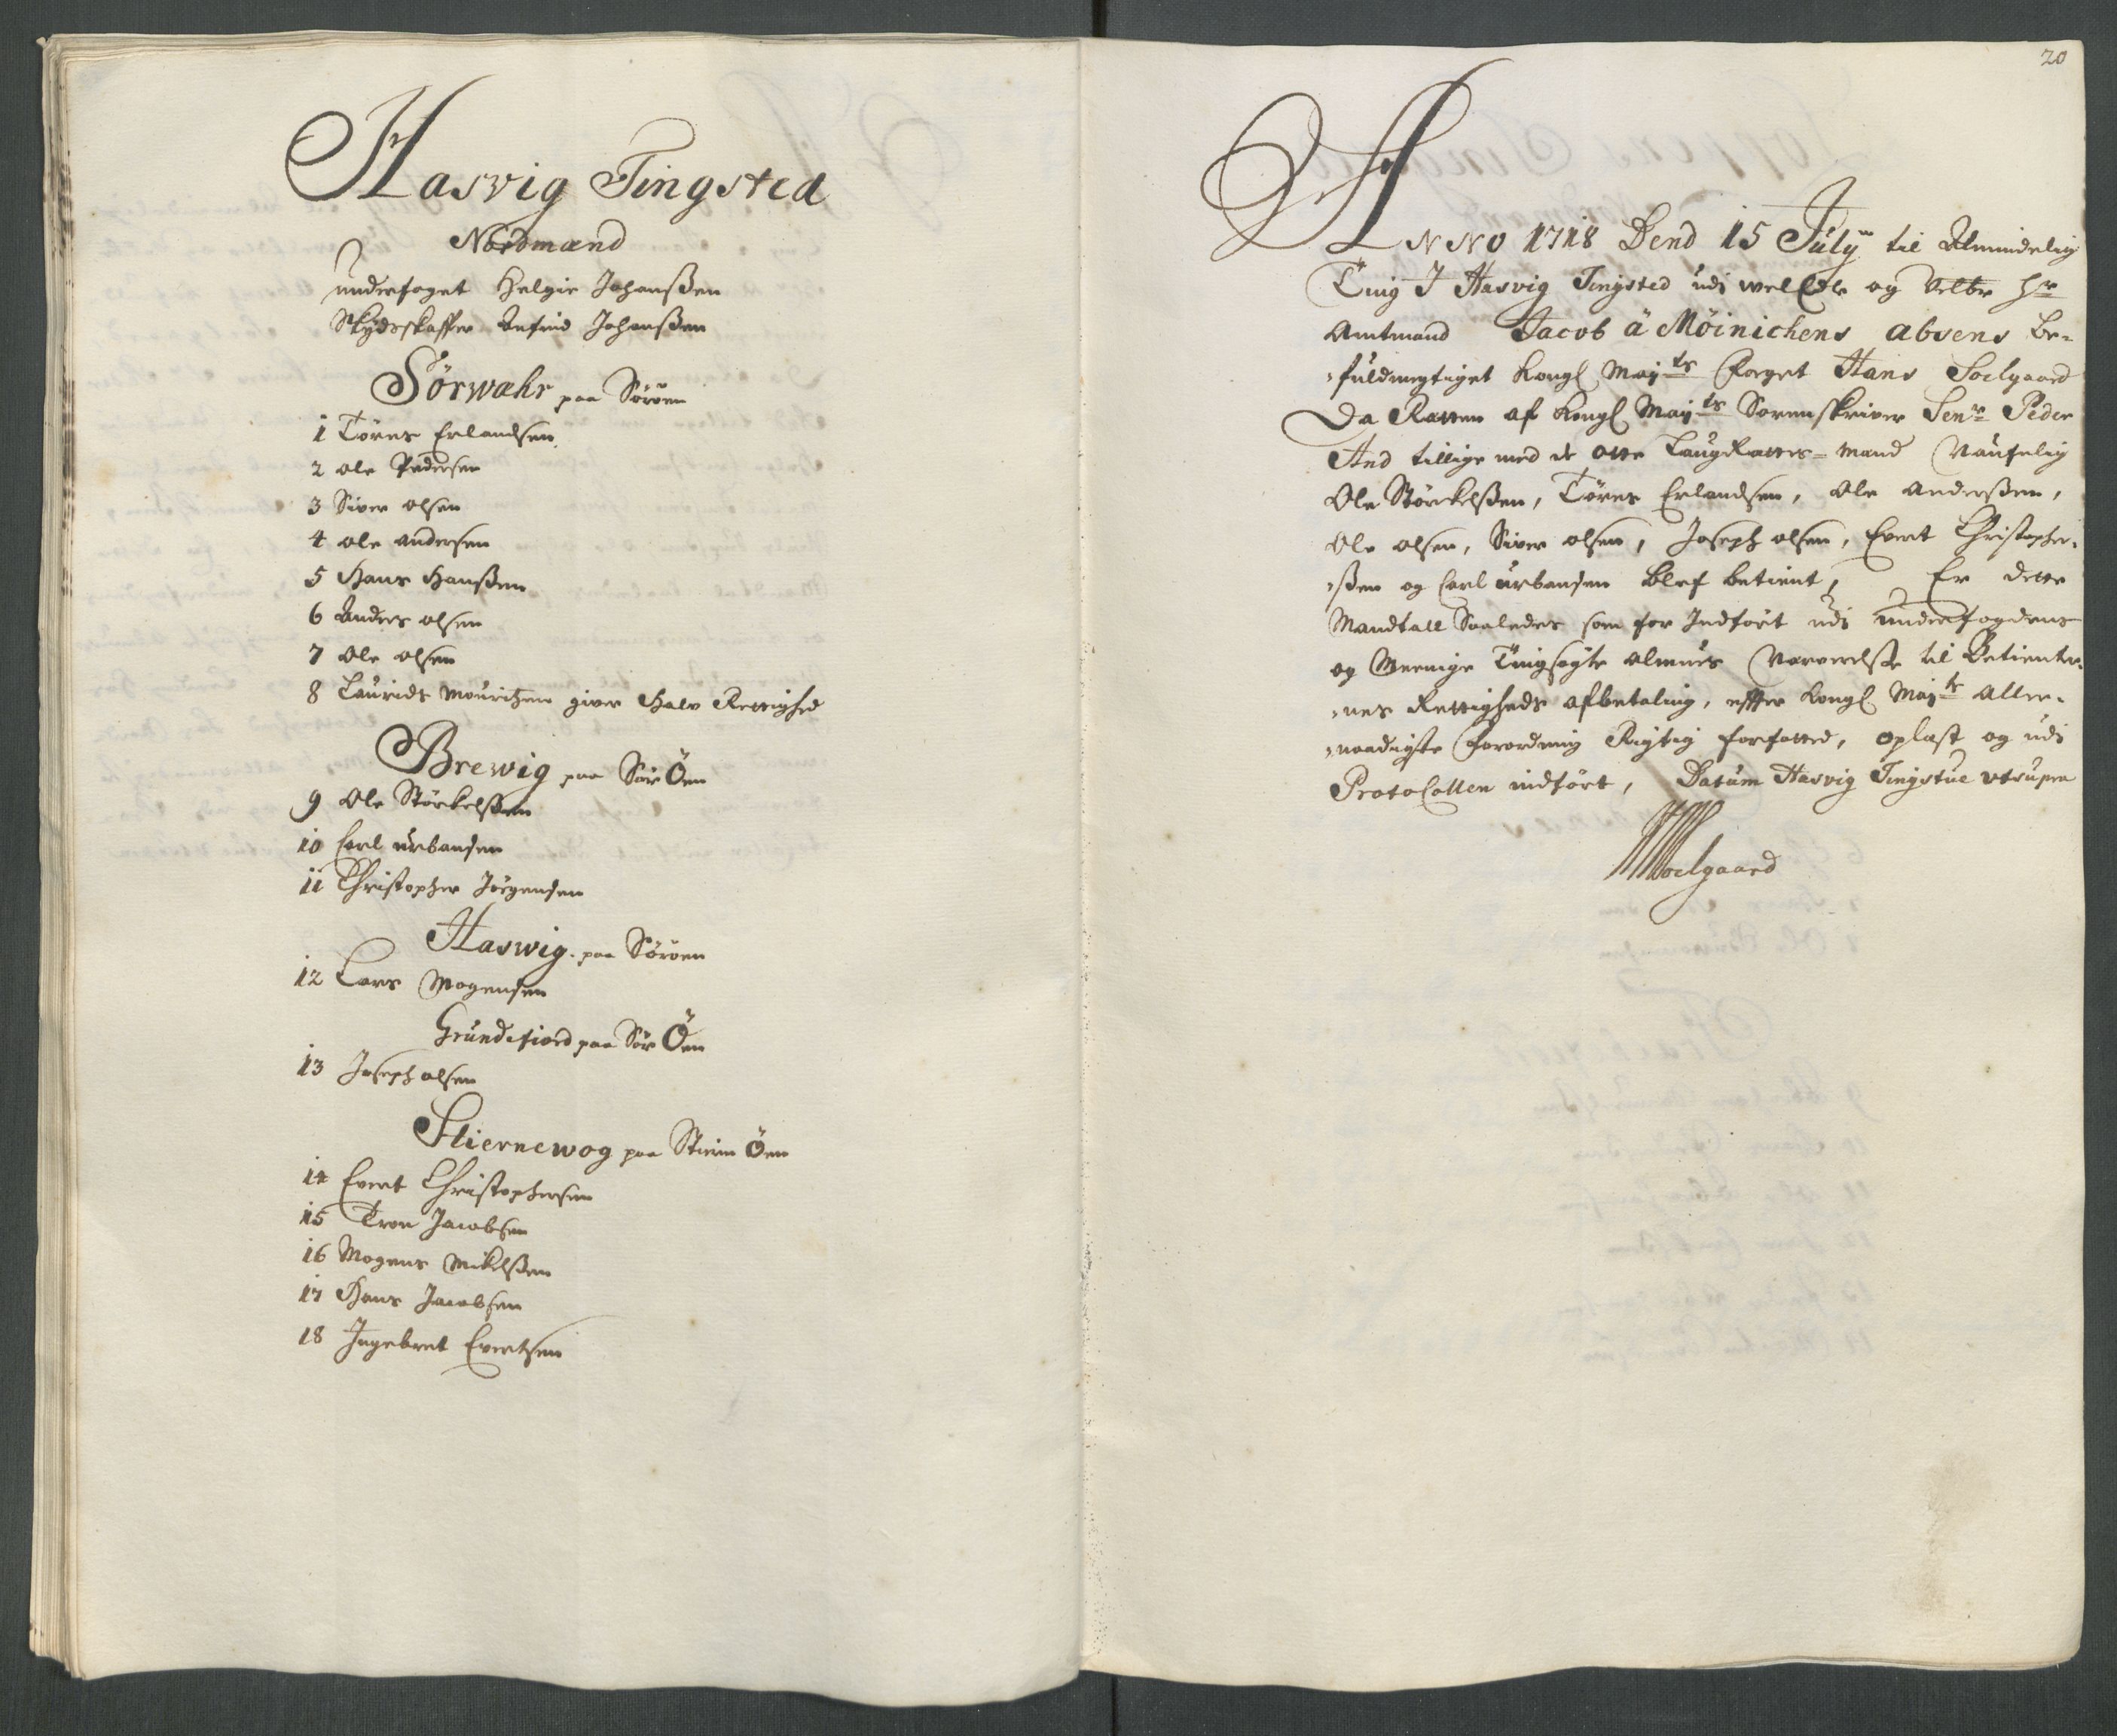 Hasvig Tingsted
Nordmænd
underfoget Helgie Johanßen
Skydsskaffer Anfind Johanßen
Sörwæhr paa Söröen
1 Töres Erlandsen
2 ole Pedersen
3 Siver olsen
4 ole andersen
5 Hans Hanßen
6 Anders olsen
7 Ole olsen
8 Laurids Mouritzen giver Halv Rettighed
Brewig paa Sör Öen
9 Ole Störkelßen
10 Carl urbansen
11 Christopher Jörgensen
Haswig paa Söröen
12 Lars Mogensen
Grundefiord paa Sör Öen
13 Joseph olsen
Stiernewog paa Stiern Öen
14 Evert Christophersen
15 Tron Jacobsen
16 Mogens Mikelßen
17 Hans Jacobsen
18 Ingebret Evertsen
20
ANNO 1718 Dend 15 July til Almindelig
Ting I Hasvig Tingsted udi welEdle og Velbr Hr
Amtmand Jacob â Möinichens absens be-
fuldmegtiget Kongl Mayts Foeget Hans Soelgaard
Da Ratten af Kongl Mayts Sorenskriver Senr Peder
And tillige med de otte LaugRattes-mænd Naufnlig
Ole Störkelßen, Töres Erlandsen, Ole Anderßen,
Ole olsen, Siver olsen, Joseph olsen, Evert Christopher-
ßen og Carl urbansen blef betient, Er dette
Mandtall Saaledes som for Indfört udi underfogdens
og Meenige Tingsøgte Almues Nærværelse til Betienter-
nes Rettigheds afbetaling, effter Kongl Mayts Aller-
naadigste Forordning Rigtig forfatted, oplæst og udi
Protocollen indfört, Datum Hasvig Tingstue utsupra
HSoelgaard